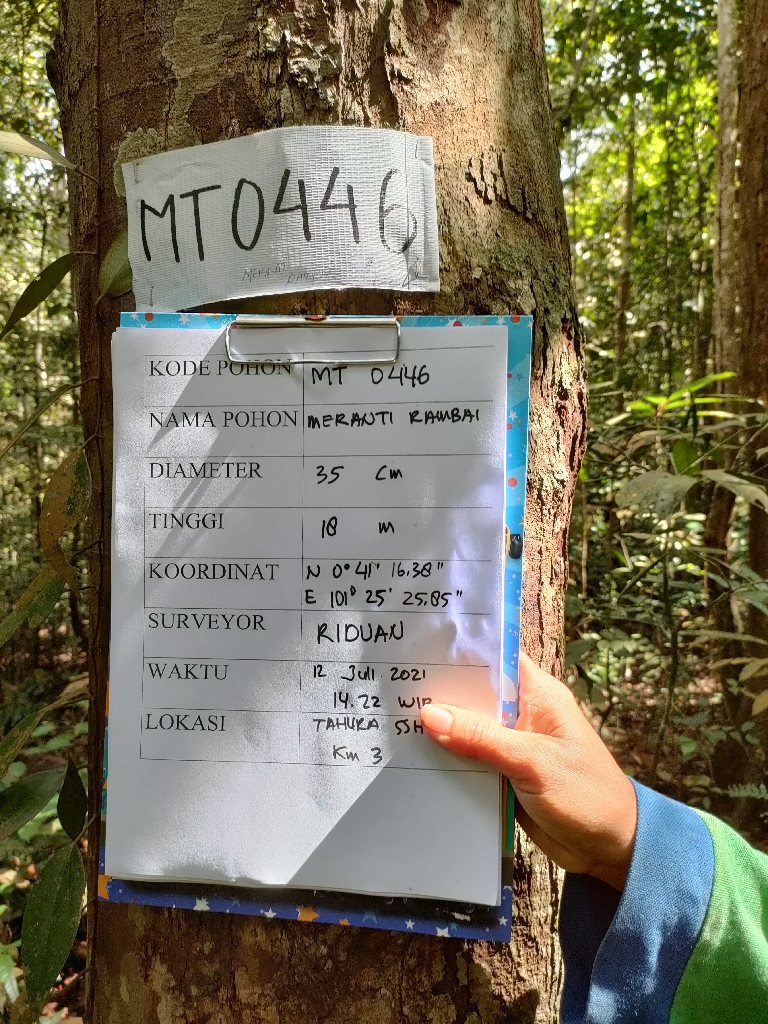 MT0446
KODE POHON MT 0446
NAMA POHON MERANTI RAMBAI
DIAMETER 35 Cm
TINGGI 18 m
KOORDINAT N 0° 41' 16.38"
E 101° 25' 25.85"
SURVEYOR RIDUAN
WAKTU 12 Juli 2021
14.22 WIB
LOKASI TAHURA SSH
Km 3